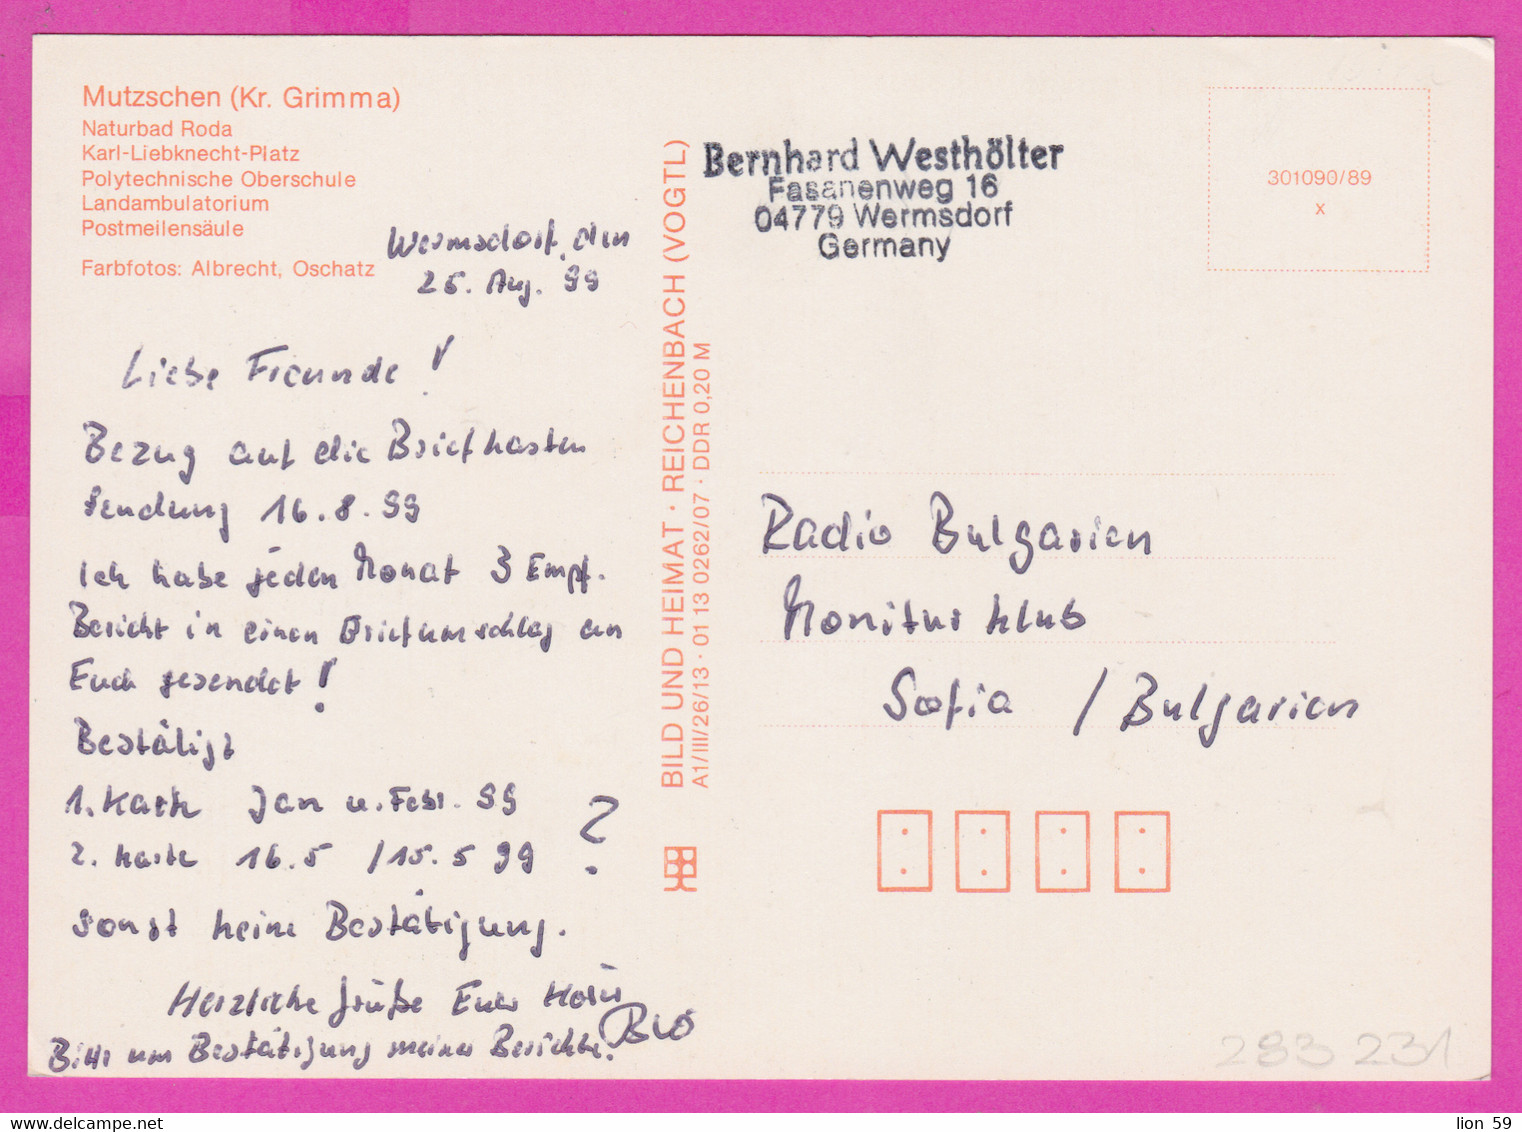 Mutzschen (Kr. Grimma)
Naturbad Roda
Karl-Liebknecht-Platz
Polytechnische Oberschule
Landambulatorium
Postmeilensäule
Farbfotos: Albrecht, Oschatz
Wermsdorf, den
25. Aug. 99
Liebe Freunde!
Bezug auf die Briefkasten
Sendung 16.8.99
Ich habe jeden Monat 3 Empf.
Bericht in einen Briefumschlag an
Euch gesendet!
Bestätigt
1. Karte Jan u. Febr. 99
2. Karte 16.5 / 15.5 99 ?
sonst keine Bestätigung.
Herzliche Grüße Euer Hörer
Bitte um Bestätigung meiner Berichte.
BILD UND HEIMAT · REICHENBACH (VOGTL)
A1/III/26/13 · 01 13 0262/07 · DDR 0,20 M
Bernhard Westhölter
Fasanenweg 16
04779 Wermsdorf
Germany
301090/89
x
Radio Bulgarien
Monitor Klub
Sofia / Bulgarien
293 231
lion 59